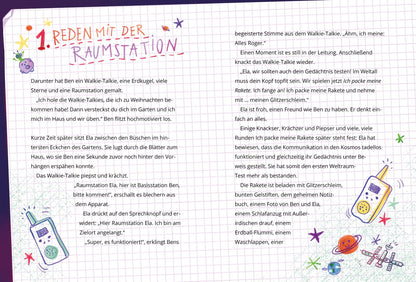 1. REDEN MIT DER
RAUMSTATION
Darunter hat Ben ein Walkie-Talkie, eine Erdkugel, viele
Sterne und eine Raumstation gemalt.
„Ich hole die Walkie-Talkies, die ich zu Weihnachten be-
kommen habe! Dann versteckst du dich im Garten und ich
mich im Haus und wir üben.“ Ben flitzt hochmotiviert los.
Kurze Zeit später sitzt Ela zwischen den Büschen im hin-
tersten Eckchen des Gartens. Sie lugt durch die Blätter zum
Haus, wo sie Ben eine Sekunde zuvor noch hinter den Vor-
hängen erspähen konnte.
Das Walkie-Talkie piepst und krächzt.
„Raumstation Ela, hier ist Basisstation Ben,
bitte kommen!“, erschallt es blechern aus
dem Apparat.
Ela drückt auf den Sprechknopf und er-
widert: „Hier Raumstation Ela. Ich bin am
Zielort angelangt.“
„Super, es funktioniert!“, erklingt Bens
begeisterte Stimme aus dem Walkie-Talkie. „Ähm, ich meine:
Alles Roger.“
Einen Moment ist es still in der Leitung. Anschließend
knackt das Walkie-Talkie wieder.
„Ela, wir sollten auch dein Gedächtnis testen! Im Weltall
muss dein Kopf topfit sein. Wir spielen jetzt ich packe meine
Rakete. Ich fange an! Ich packe meine Rakete und nehme
mit … meinen Glitzerschleim.“
Ela ist froh, einen Freund wie Ben zu haben. Er denkt ein-
fach an alles.
Einige Knackser, Krächzer und Piepser und viele, viele
Runden Ich packe meine Rakete später steht fest: Ela hat
bewiesen, dass die Kommunikation in den Kosmos tadellos
funktioniert und gleichzeitig ihr Gedächtnis unter Be-
weis gestellt. Sie hat somit den ersten Weltraum-
Test mehr als bestanden.
Die Rakete ist beladen mit Glitzerschleim,
bunten Gelstiften, dem geheimen Notiz-
buch, einem Foto von Ben und Ela,
einem Schlafanzug mit Außer-
irdischen drauf, einem
Erdball-Flummi, einem
Waschlappen, einer